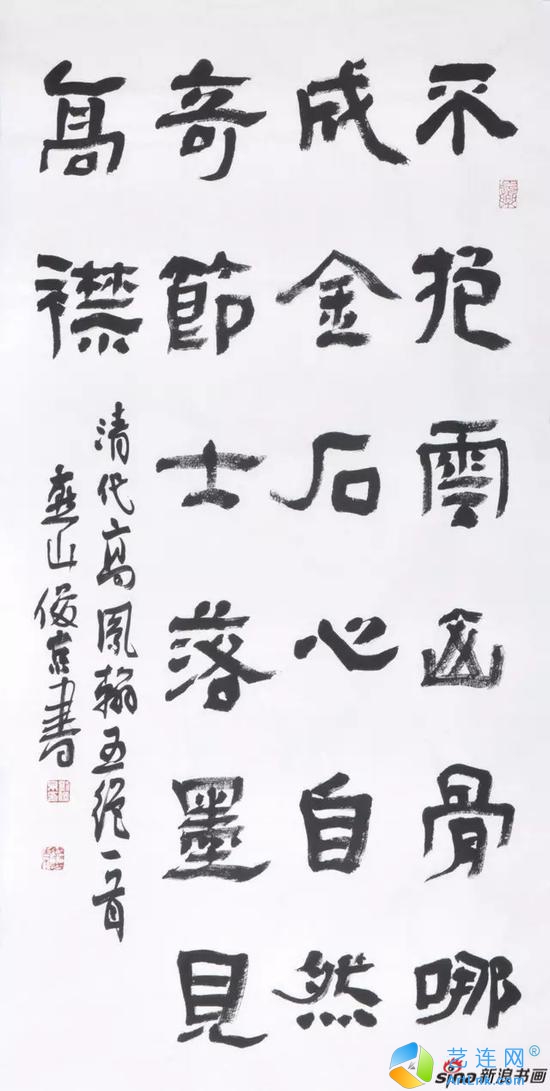 不抱雲山骨哪
成金石心自然
奇節士落墨見
髙襟
清代高鳳翰五绝一首
燕山俊京書
艺连网®
sina新浪书画